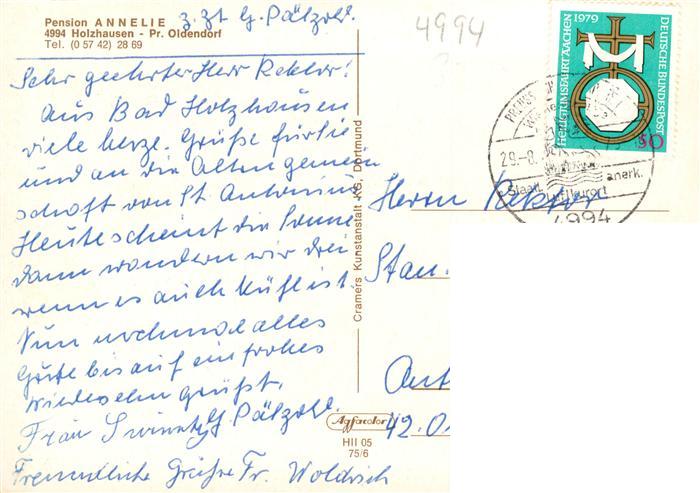 Pension ANNELIE
4994 Holzhausen - Pr. Oldendorf
Tel. (0 57 42) 28 69
z. Zt G. Pätzold.
4994
Sehr geehrter Herr Rektor!
Aus Bad Holzhausen
viele herzl. Grüße für Sie
und an die Altengemein
schaft von St. Antonius
Heute scheint die Sonne
dann wandern wir drei
wenn es auch kühl ist.
Nun nochmal alles
Gute bis auf ein frohes
Wiedersehn grüßt.
Frau G. Pätzold.
Freundliche Grüße Fr. Woldrich
Cramers Kunstanstalt KG, Dortmund
Agfacolor
HII 05
75/6
HEILIGTUMSFAHRT AACHEN 1979
DEUTSCHE BUNDESPOST
50
29.-8.
Staatl. anerk.
Luftkurort
4994
Herrn Rektor
Stan.
Ant
42.0